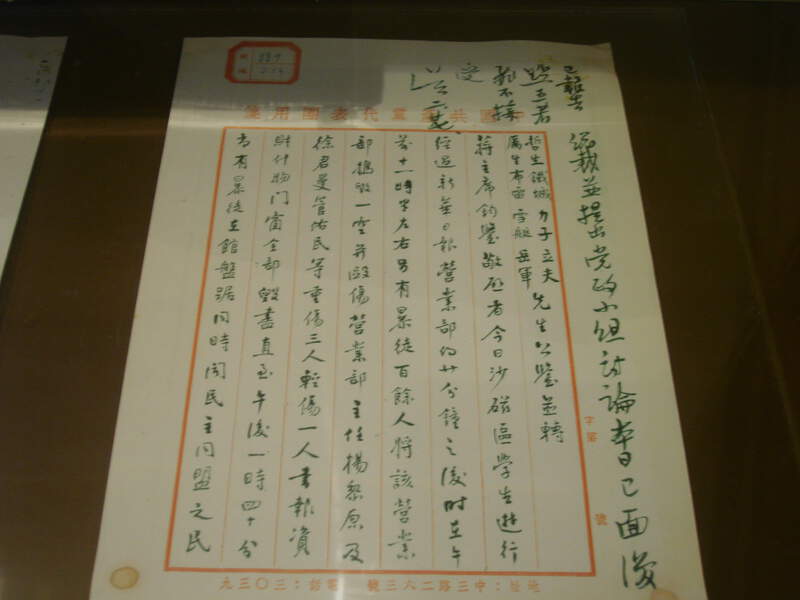 中國共產黨代表團用箋
已報告
總裁並提出党政小組討論
已面復
字第 號
哲生鐵城力子立夫先生公鑒並轉
厲生布雷雪艇岳軍
蔣主席鈞鑒敬啟者今日沙磁區學生遊行
經過新華日報營業部約廿分鐘之後時在午
前十一時半左右另有暴徒百餘人將該營業
部搗毀一空并毆傷營業部主任楊黎原及
徐君曼管佑民等重傷三人輕傷一人書報資
財什物门窗全部毀盡直至午後一時四十分
尚有暴徒在館盤踞同時聞民主同盟之民
地址：中三路二六三號